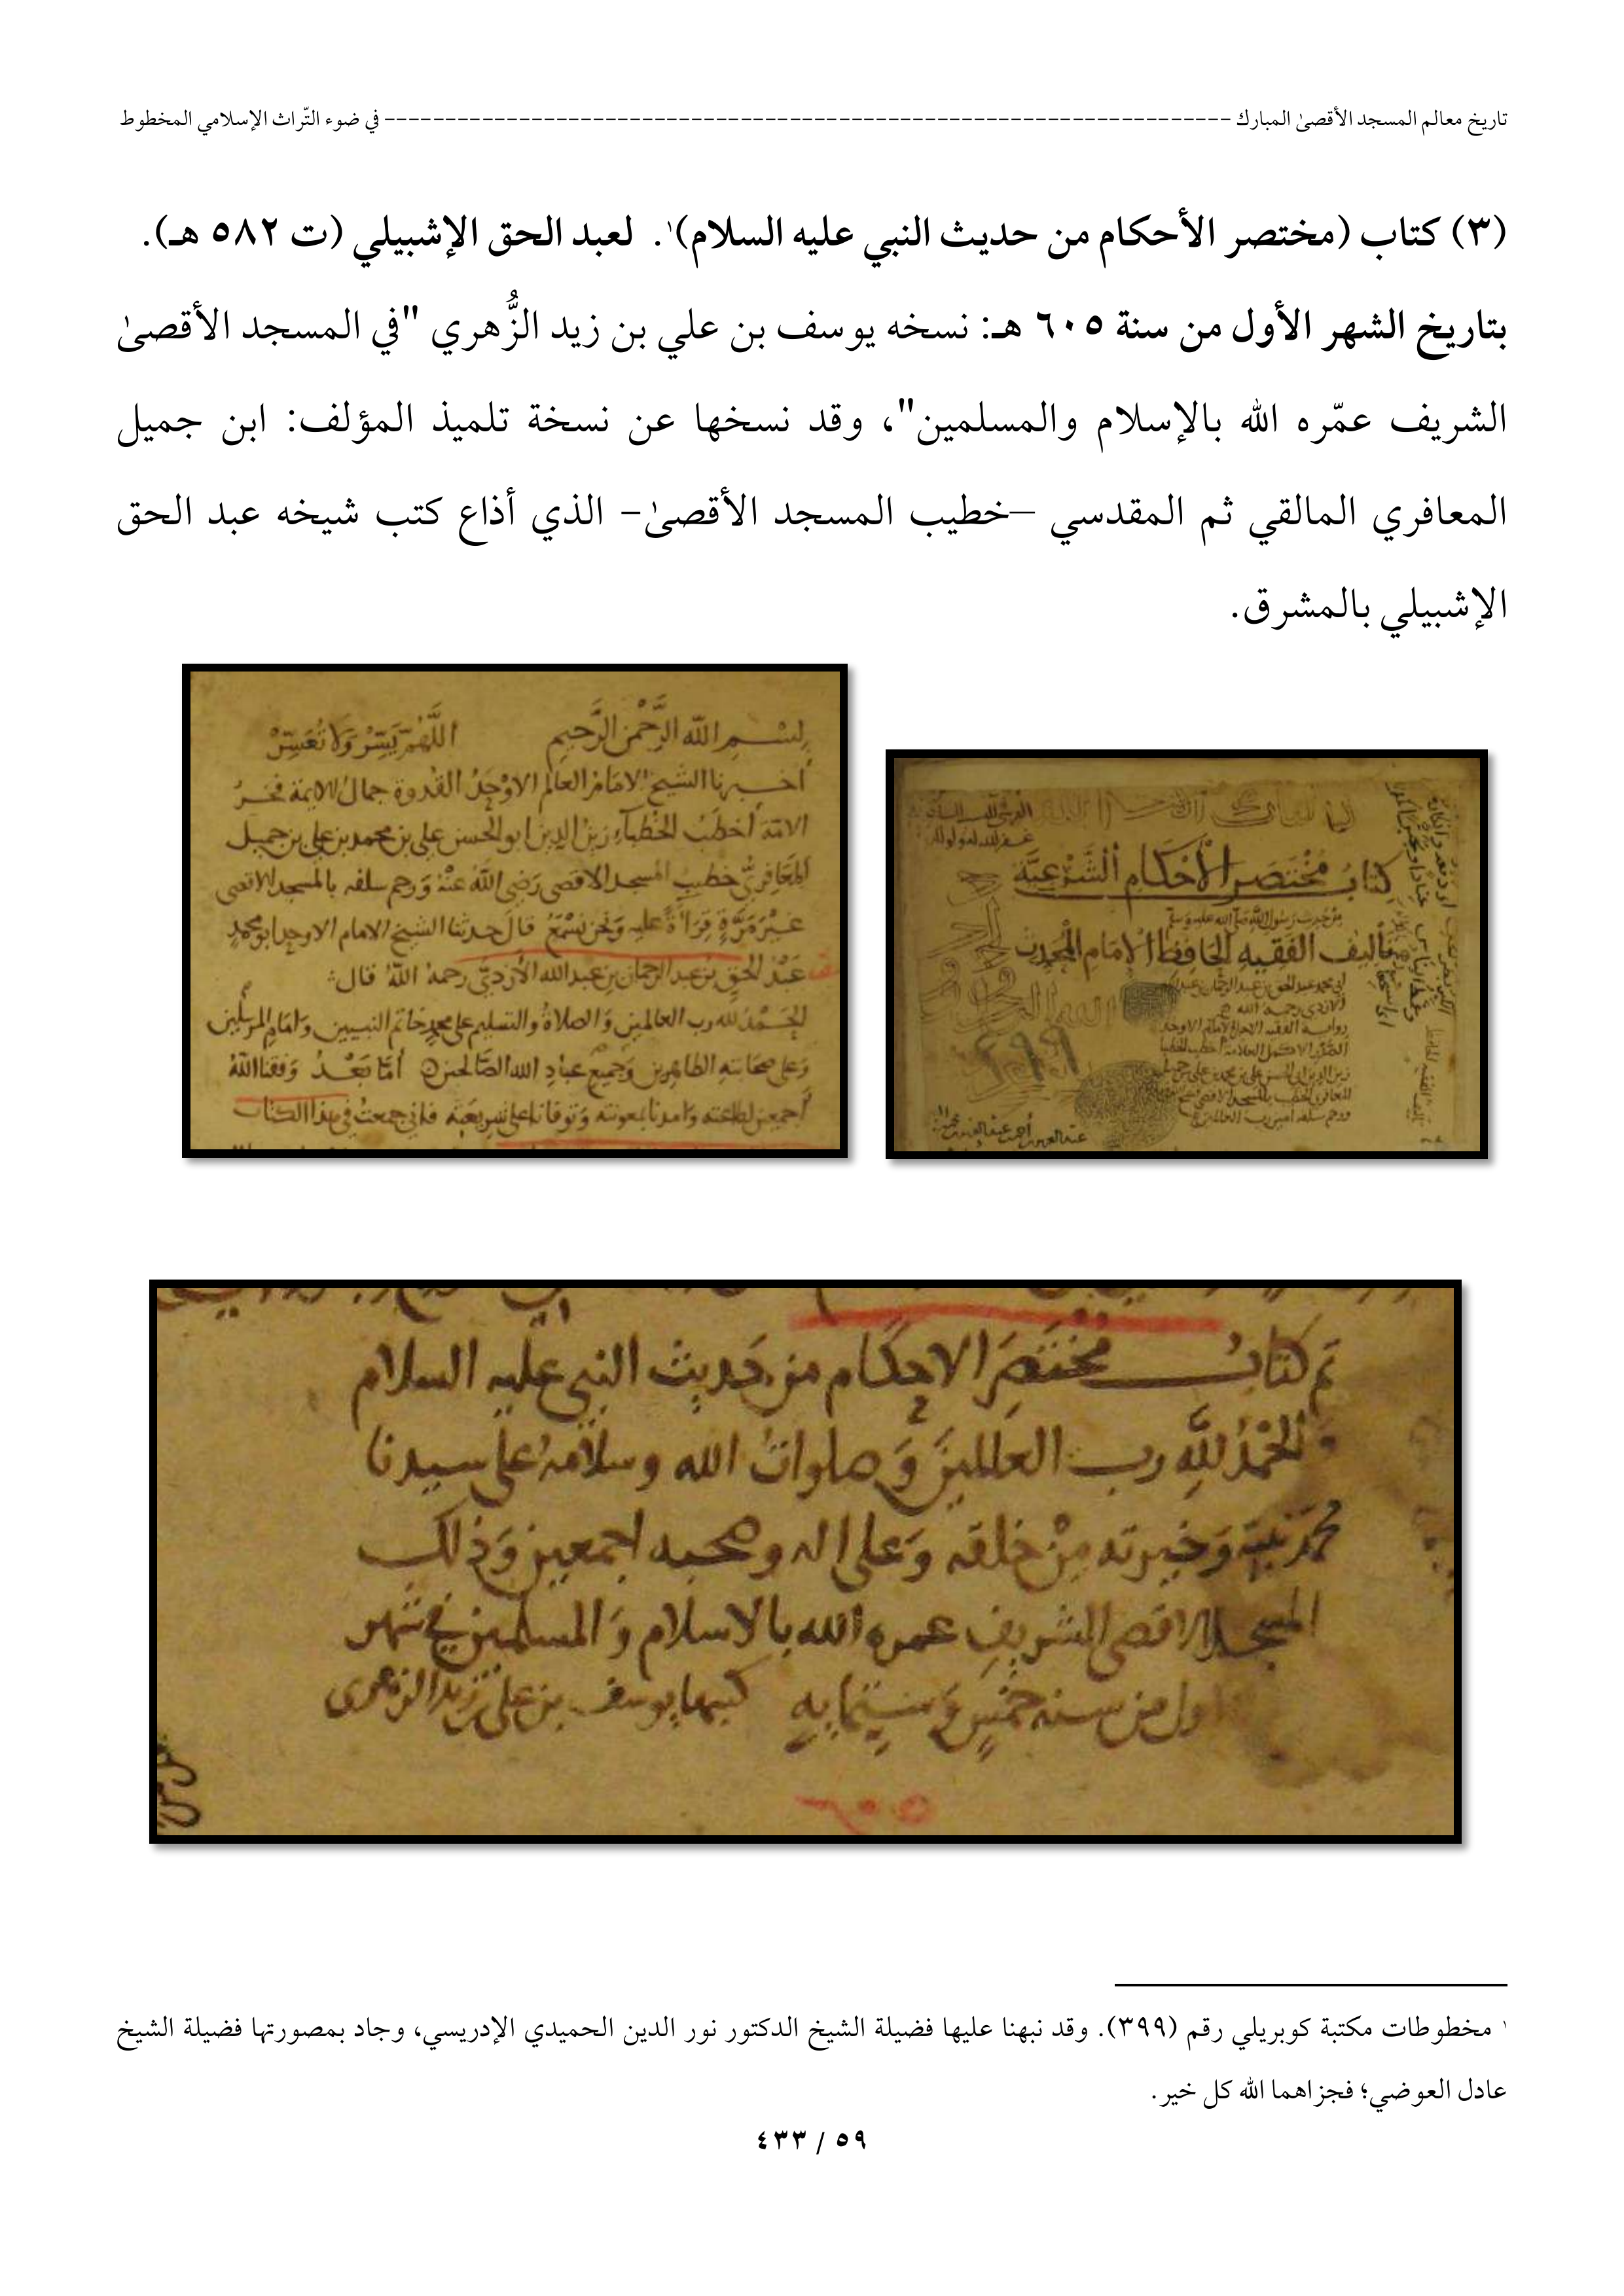 تاريخ معالم المسجد الأقصىٰ المبارك ---------------------------------------------------------------------- في ضوء التّراث الإسلامي المخطوط
(٣) كتاب (مختصر الأحكام من حديث النبي عليه السلام)١. لعبد الحق الإشبيلي (ت ٥٨٢ هـ).
بتاريخ الشهر الأول من سنة ٦٠٥ هـ: نسخه يوسف بن علي بن زيد الزُّهري "في المسجد الأقصىٰ
الشريف عمّره الله بالإسلام والمسلمين"، وقد نسخها عن نسخة تلميذ المؤلف: ابن جميل
المعافري المالقي ثم المقدسي –خطيب المسجد الأقصىٰ- الذي أذاع كتب شيخه عبد الحق
الإشبيلي بالمشرق.
كتاب مختصر الأحكام الشرعية
من حديث رسول الله صلى الله عليه وسلم
تأليف الفقيه الحافظ الامام المحدث
ابي محمد عبد الحق بن عبد الرحمان بن عبد الله
الازدي رحمه الله
٣٩٩
بسم الله الرحمن الرحيم اللهم يسر ولا تعسر
اخبرنا الشيخ الامام العالم الاوحد القدوة جمال الايمة فخر
الامة أخطب الخطباء زين الدين ابو الحسن علي بن محمد بن علي بن جميل
المعافري خطيب المسجد الاقصى رضي الله عنه ورحم سلفه بالمسجد الاقصى
غير مرة قراءة عليه ونحن نسمع قال حدثنا الشيخ الامام الاوحد ابو محمد
عبد الحق بن عبد الرحمان بن عبد الله الأزدي رحمه الله قال
الحمد لله رب العالمين والصلاة والتسليم على محمد خاتم النبيين وامام المرسلين
وعلى صحابته الطاهرين وجميع عباد الله الصالحين أما بعد وفقنا الله
أجمعين لطاعته وامدنا بمعونته وتوفانا على شريعته فاني جمعت في هذا الكتاب
تم كتاب مختصر الاحكام من حديث النبي عليه السلام
والحمد لله رب العالمين وصلوات الله وسلامه على سيدنا
محمد نبيه وخيرته من خلقه وعلى اله وصحبه اجمعين وذلك
المسجد الاقصى الشريف عمره الله بالاسلام والمسلمين في شهر
اول من سنه خمس وستمايه كتبها يوسف بن علي بن زيد الزهرى
١ مخطوطات مكتبة كوبريلي رقم (٣٩٩). وقد نبهنا عليها فضيلة الشيخ الدكتور نور الدين الحميدي الإدريسي، وجاد بمصورتها فضيلة الشيخ
عادل العوضي؛ فجزاهما الله كل خير.
٥٩ / ٤٣٣